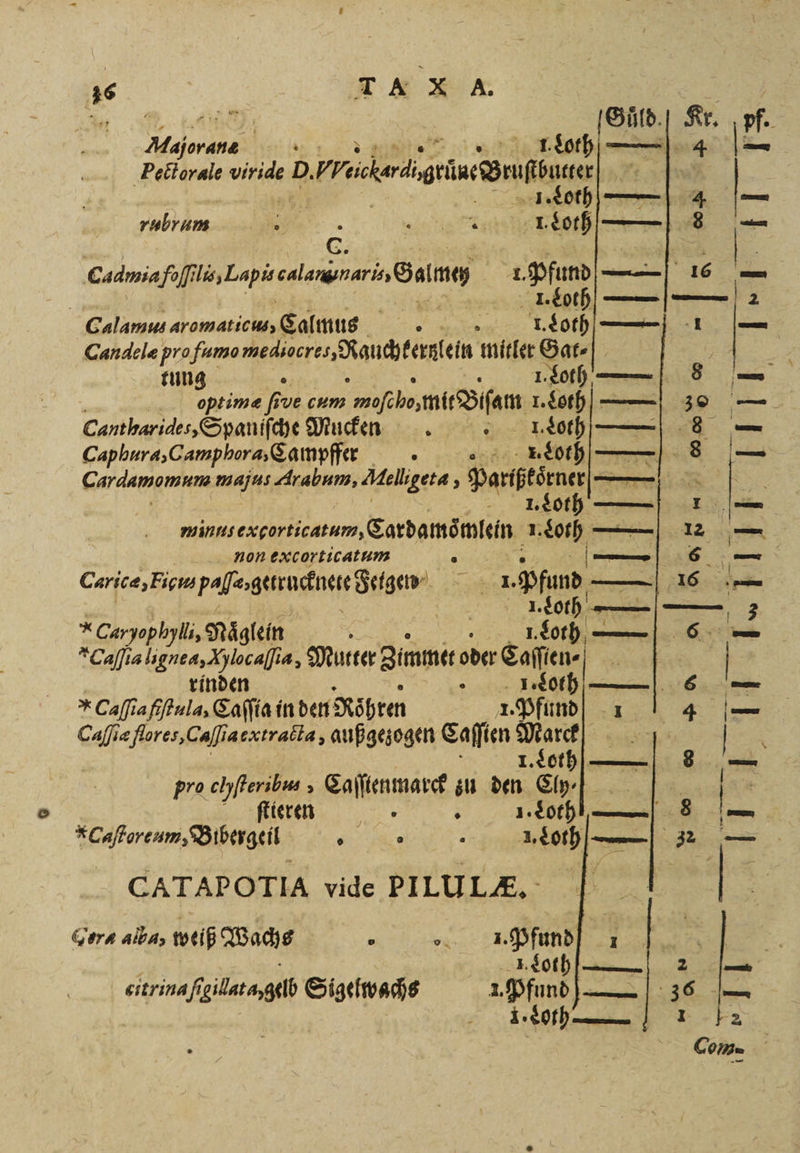 36 TAXA.
|Gůld.| Kr. | pf.
Majoranæ . . . . 1.Loth —— 4 —
Pectorale viride D.VVeickardi,grüne Brustbutter
1.Loth —— 4 —
rubrum . . . . 1.Loth —— 8 —
C.
Cadmia fossilis, Lapis calaminaris, Galmey 1.Pfund —— 16 —
1.Loth —— —— 2
Calamus aromaticus, Calmus . . 1.Loth —— 1 —
Candelæ pro fumo mediocres, Rauchkertzlein mitler Gat-
tung . . . . 1.Loth —— 8 —
optimæ sive cum moscho, mit Bisam 1.Loth —— 30 —
Cantharides, Spanische Mucken . . 1.Loth —— 8 —
Caphura, Camphora, Campffer . . 1.Loth —— 8 —
Cardamomum majus Arabum, Melligeta, Parißkörner ——
1.Loth —— 1 —
minus excorticatum, Cardamömlein 1.Loth —— 12 —
non excorticatum . . —— 6 —
Caricæ, Ficus passæ, getrucknete Feigen 1.Pfund —— 16 —
1.Loth —— —— 3
* Caryophylli, Näglein . . . 1.Loth —— 6 —
* Cassia lignea, Xylocassia, Mutter Zimmet oder Cassien-
rinden . . . 1.Loth —— 6 —
* Cassia fistula, Cassia in den Röhren 1.Pfund 1 4 —
Cassiæ flores, Cassia extracta, außgezogen Cassien Marck
1.Loth —— 8 —
pro clysteribus, Cassienmarck zu den Cly-
stieren . . 1.Loth —— 8 —
* Castoreum, Bibergeil . . . 1.Loth —— 32 —
CATAPOTIA vide PILULÆ.
Cera alba, weiß Wachs . . 1.Pfund 1
1.Loth —— 2 —
citrina sigillata, gelb Sigelwachs 1.Pfund —— 36 —
1.Loth —— 1 2
Com-